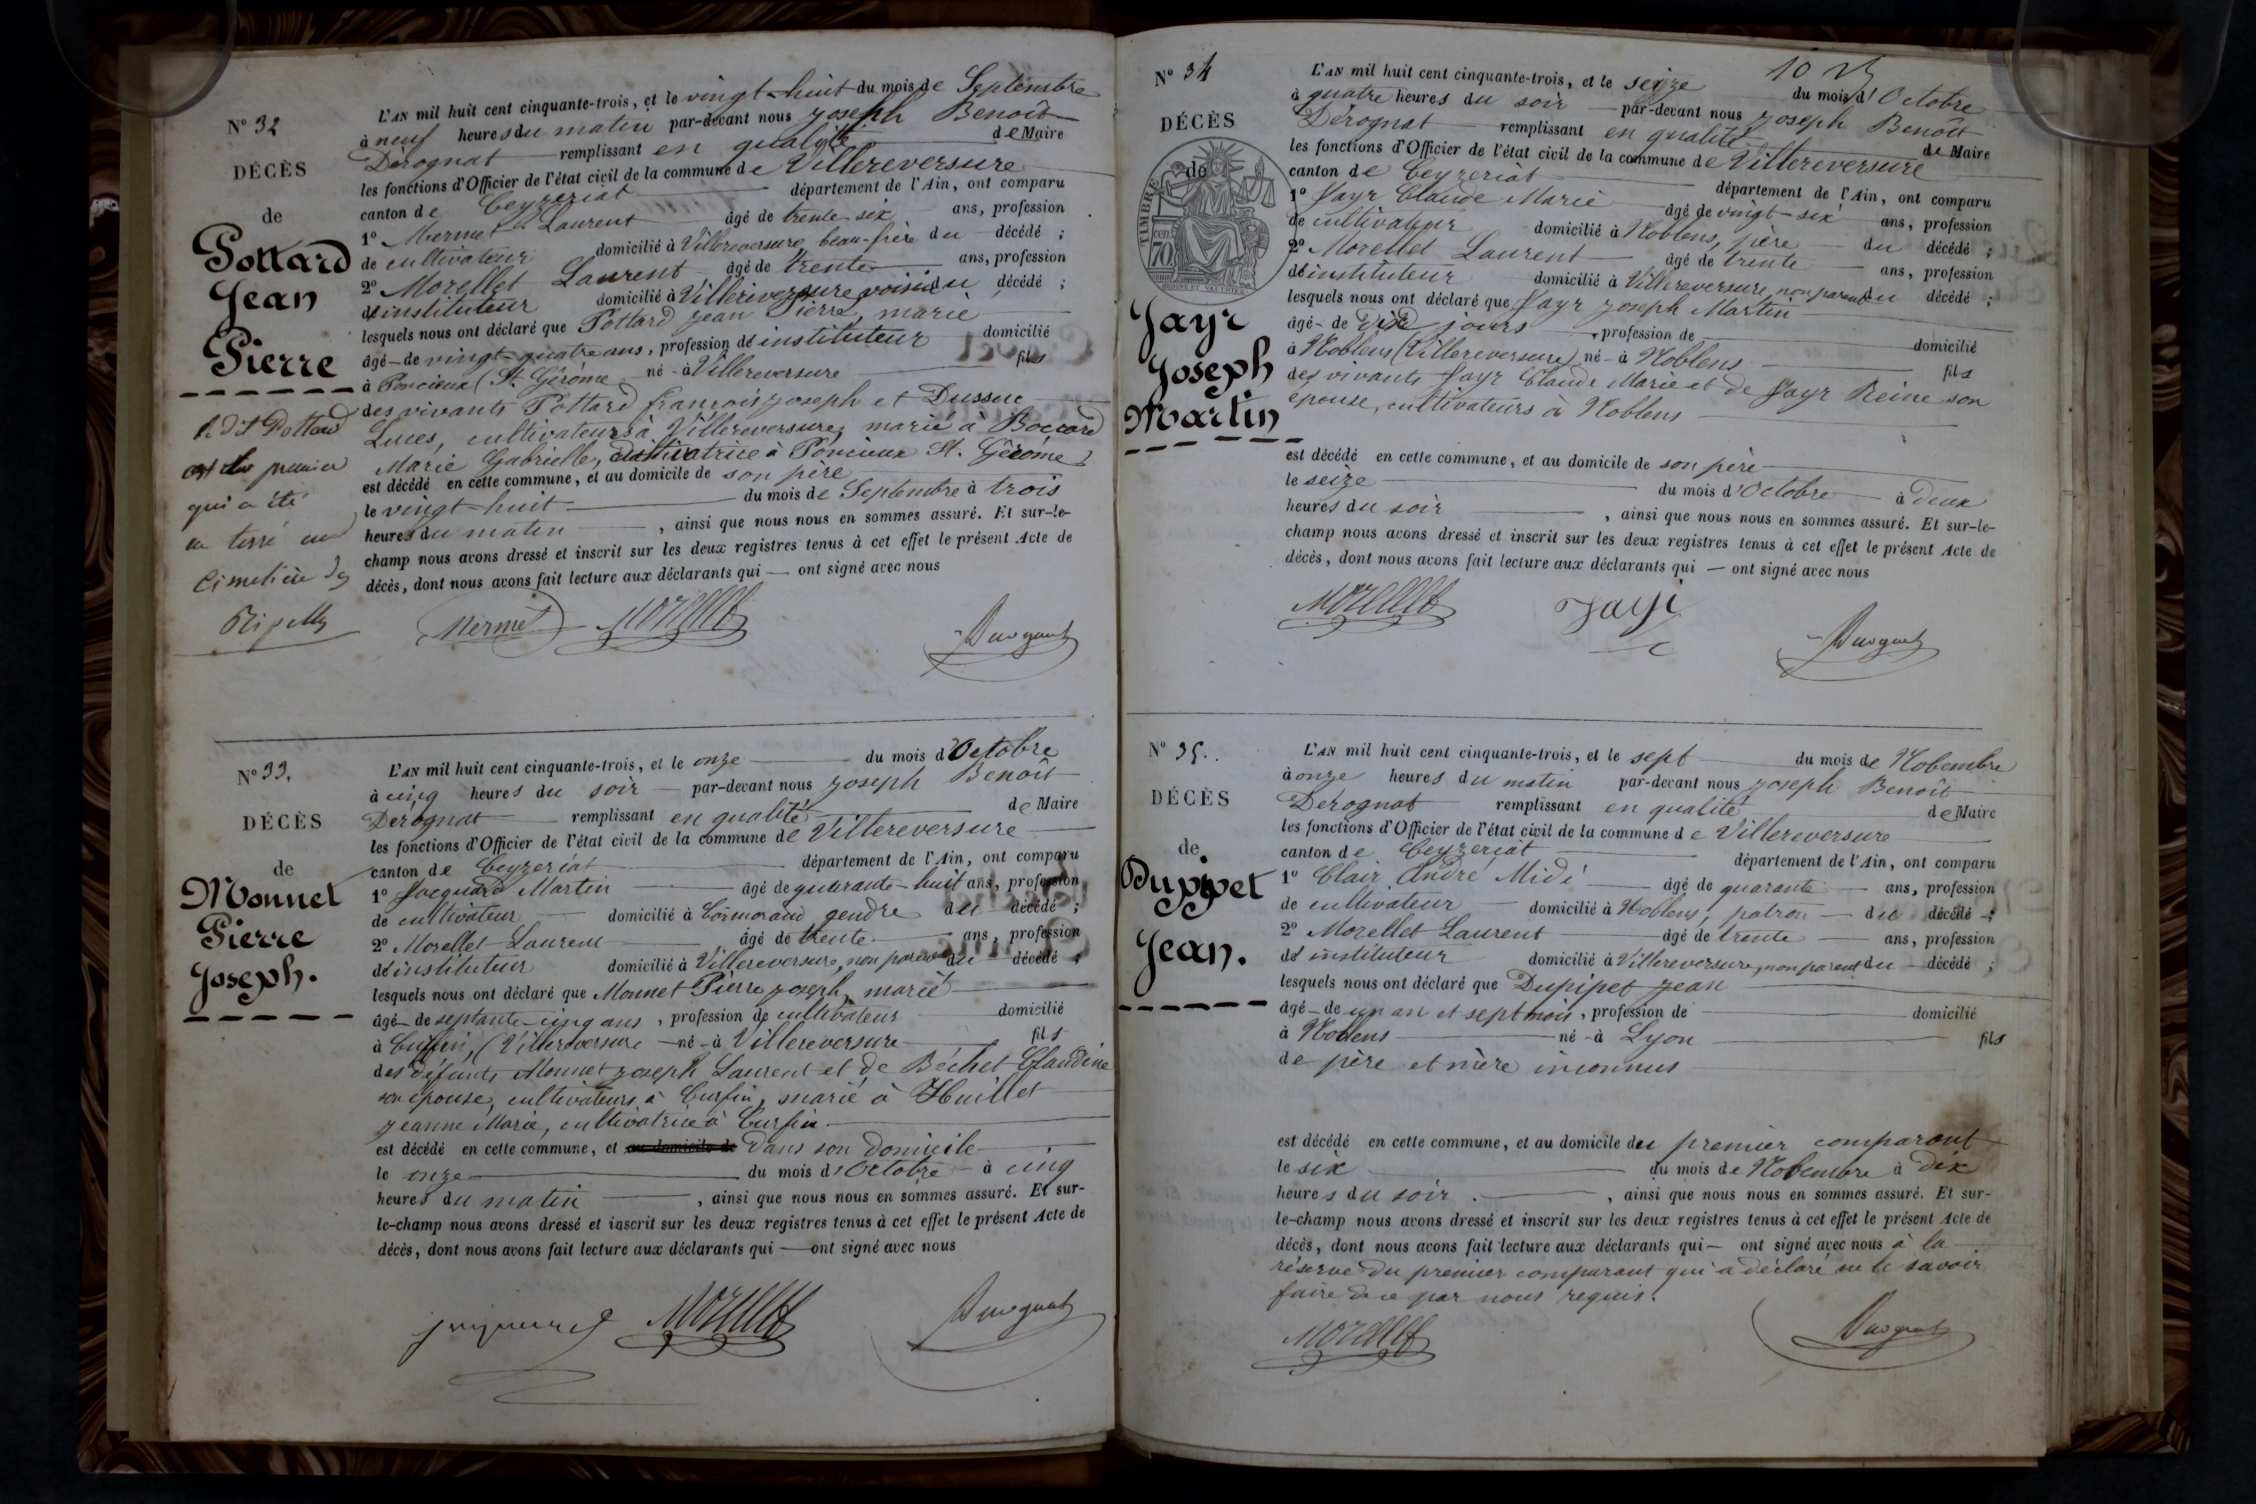 N° 32
DÉCÈS
de
Pottard
Jean
Pierre
L'AN mil huit cent cinquante-trois, et le vingt-huit du mois de Septembre
à neuf heures du matin par-devant nous Joseph Benoît
Dérognat remplissant en qualité de Maire
les fonctions d'Officier de l'état civil de la commune de Villereversure
canton de Ceyzeriat département de l'Ain, ont comparu
1° Mermet Laurent âgé de trente six ans, profession
de cultivateur domicilié à Villereversure, beau-frère du décédé ;
2° Morellet Laurent âgé de trente ans, profession
d'instituteur domicilié à Villereversure voisin du décédé ;
lesquels nous ont déclaré que Pottard Jean Pierre, marié
âgé de vingt-quatre ans, profession d'instituteur domicilié
à Poncieux (St. Gérôme né à Villereversure fils
des vivants Pottard françois joseph et Dussuc
Luces, cultivateurs à Villereversure, marié à Boccard
Marie Gabrielle, cultivatrice à Poncieux St. Gérôme
est décédé en cette commune, et au domicile de son père
le vingt-huit du mois de Septembre à trois
heures du matin , ainsi que nous nous en sommes assuré. Et sur-le-
champ nous avons dressé et inscrit sur les deux registres tenus à cet effet le présent Acte de
décès, dont nous avons fait lecture aux déclarants qui ont signé avec nous
Mermet Morellet Derognat
le dit Pottard
est le premier
qui a été
en terré au
Cimetière
N° 33.
DÉCÈS
de
Monnet
Pierre
Joseph.
L'AN mil huit cent cinquante-trois, et le onze du mois d'Octobre
à cinq heures du soir par-devant nous Joseph Benoît
Dérognat remplissant en qualité de Maire
les fonctions d'Officier de l'état civil de la commune de Villereversure
canton de Ceyzeriat département de l'Ain, ont comparu
1° Jacquard Martin âgé de quarante-huit ans, profession
de cultivateur domicilié à Cormorand, gendre du décédé ;
2° Morellet Laurent âgé de trente ans, profession
d'instituteur domicilié à Villereversure, non parent du décédé ;
lesquels nous ont déclaré que Monnet Pierre joseph, marié
âgé de septante-cinq ans, profession de cultivateur domicilié
à Curfin, (Villereversure né à Villereversure fils
des défunts Monnet joseph Laurent et de Bechet Claudine
son épouse, cultivateurs à Curfin, marié à Huillet
jeanne Marie, cultivatrice à Curfin
est décédé en cette commune, et au domicile de Dans son Domicile
le onze du mois d'Octobre à cinq
heures du matin , ainsi que nous nous en sommes assuré. Et sur-
le-champ nous avons dressé et inscrit sur les deux registres tenus à cet effet le présent Acte de
décès, dont nous avons fait lecture aux déclarants qui ont signé avec nous
Morellet Derognat
N° 34
DÉCÈS
de
TIMBRE
70
Jayr
Joseph
Martin
L'AN mil huit cent cinquante-trois, et le seize du mois d'Octobre
à quatre heures du soir par-devant nous Joseph Benoît
Dérognat remplissant en qualité de Maire
les fonctions d'Officier de l'état civil de la commune de Villereversure
canton de Ceyzeriat département de l'Ain, ont comparu
1° Jayr Claude Marie âgé de vingt-six ans, profession
de cultivateur domicilié à Noblens, père du décédé ;
2° Morellet Laurent âgé de trente ans, profession
d'instituteur domicilié à Villereversure, non parent du décédé ;
lesquels nous ont déclaré que Jayr joseph Martin
âgé de dix jours, profession de domicilié
à Noblens (Villereversure) né à Noblens fils
des vivants Jayr Claude Marie et de Jayr Reine son
épouse, cultivateurs à Noblens
est décédé en cette commune, et au domicile de son père
le seize du mois d'Octobre à deux
heures du soir , ainsi que nous nous en sommes assuré. Et sur-le-
champ nous avons dressé et inscrit sur les deux registres tenus à cet effet le présent Acte de
décès, dont nous avons fait lecture aux déclarants qui ont signé avec nous
Morellet Jayr Derognat
N° 35.
DÉCÈS
de
Dupipet
Jean.
L'AN mil huit cent cinquante-trois, et le sept du mois de Nobembre
à onze heures du matin par-devant nous Joseph Benoît
Dérognat remplissant en qualité de Maire
les fonctions d'Officier de l'état civil de la commune de Villereversure
canton de Ceyzeriat département de l'Ain, ont comparu
1° Clair André Midi âgé de quarante ans, profession
de cultivateur domicilié à Noblens, patron du décédé ;
2° Morellet Laurent âgé de trente ans, profession
d'instituteur domicilié à Villereversure, non parent du décédé ;
lesquels nous ont déclaré que Dupipet Jean
âgé de un an et sept mois, profession de domicilié
à Noblens né à Lyon fils
de père et mère inconnus
est décédé en cette commune, et au domicile du premier comparant
le six du mois de Nobembre à dix
heures du soir , ainsi que nous nous en sommes assuré. Et sur-
le-champ nous avons dressé et inscrit sur les deux registres tenus à cet effet le présent Acte de
décès, dont nous avons fait lecture aux déclarants qui ont signé avec nous à la
réserve du premier comparant qui a déclaré ne le savoir
faire de ce par nous requis.
Morellet Derognat